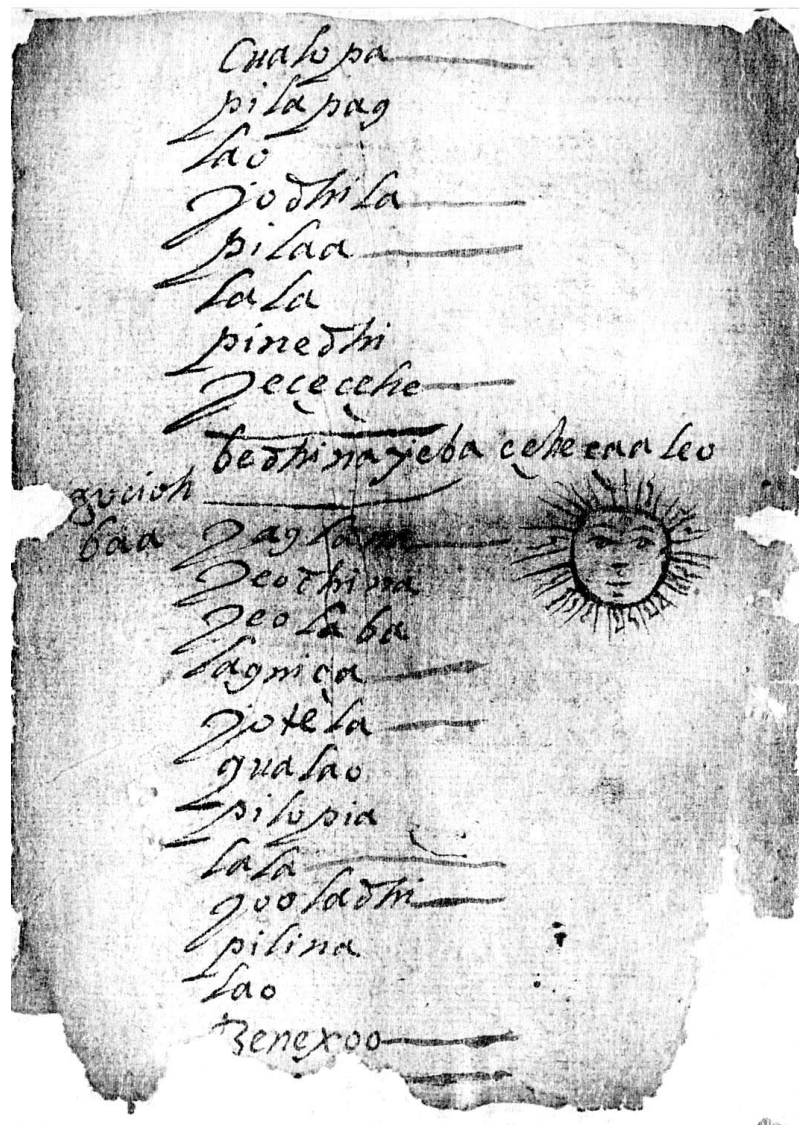 cualopa
pilapag
lao
yodhila
pilaa
lala
pinedhi
yeçeçehe
bedhinayeba çehecaaleo
gocioh
baa yaglana
yeodhina
yeolaba
lagniça
yotela
gualao
pilopia
lala
yooladhi
pilina
lao
zenexoo